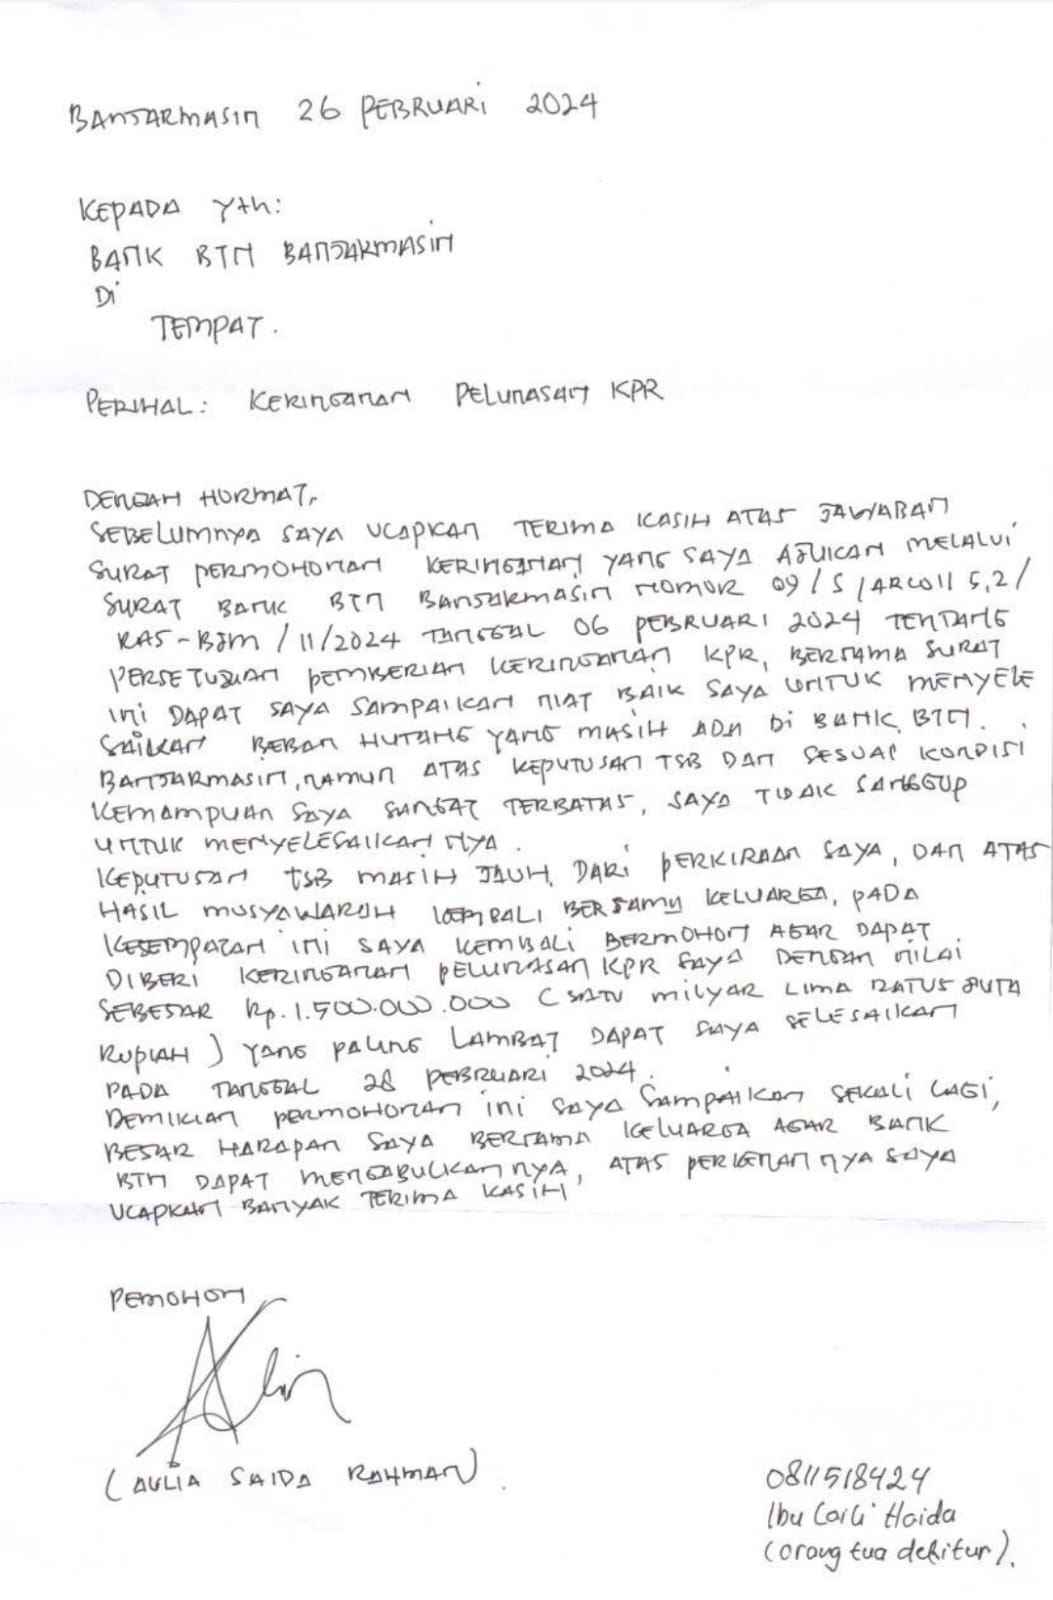 BANJARMASIN 26 PEBRUARI 2024
KEPADA Yth:
BANK BTN BANJARMASIN
Di
TEMPAT.
PERIHAL: KERINGANAN PELUNASAN KPR
DENGAN HORMAT,
SEBELUMNYA SAYA UCAPKAN TERIMA KASIH ATAS JAWABAN
SURAT PERMOHONAN KERINGANAN YANG SAYA AJUKAN MELALUI
SURAT BANK BTN BANJARMASIN NOMOR 09/S/ARCO II 5,2/
RAS-BJM/11/2024 TANGGAL 06 PEBRUARI 2024 TENTANG
PERSETUJUAN PEMBERIAN KERINGANAN KPR, BERSAMA SURAT
INI DAPAT SAYA SAMPAIKAN NIAT BAIK SAYA UNTUK MENYELE
SAIKAN BEBAN HUTANG YANG MASIH ADA DI BANK BTN.
BANJARMASIN, NAMUN ATAS KEPUTUSAN TSB DAN SESUAI KONDISI
KEMAMPUAN SAYA SANGAT TERBATAS, SAYA TIDAK SANGGUP
UNTUK MENYELESAIKANNYA.
KEPUTUSAN TSB MASIH JAUH DARI PERKIRAAN SAYA, DAN ATAS
HASIL MUSYAWARAH KEMBALI BERSAMA KELUARGA, PADA
KESEMPATAN INI SAYA KEMBALI BERMOHON AGAR DAPAT
DIBERI KERINGANAN PELUNASAN KPR SAYA DENGAN NILAI
SEBESAR Rp. 1.500.000.000 (SATU MILYAR LIMA RATUS JUTA
RUPIAH) YANG PALING LAMBAT DAPAT SAYA SELESAIKAN
PADA TANGGAL 28 PEBRUARI 2024.
DEMIKIAN PERMOHONAN INI SAYA SAMPAIKAN SEKALI LAGI,
BESAR HARAPAN SAYA BERSAMA KELUARGA AGAR BANK
BTN DAPAT MENGABULKANNYA, ATAS PERKENANNYA SAYA
UCAPKAN BANYAK TERIMA KASIH
PEMOHON
(AULIA SAIDA RAHMAN)
0811518424
Ibu Laili Haida
(orang tua debitur).